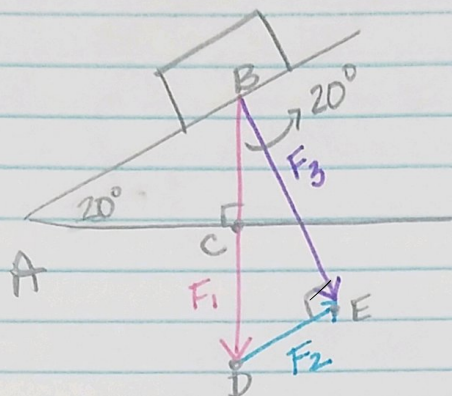 B
20°
F3
20°
C
A
F1
E
F2
D